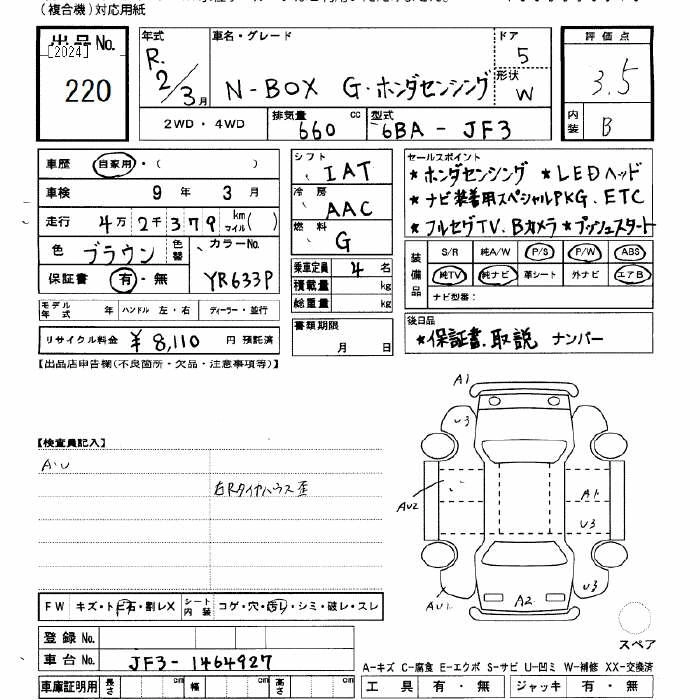 (複合機)対応用紙
出品No.
[2024]
220
年式
R.
2/3月
車名・グレード
N-BOX G・ホンダセンシング
ドア
5
形状
W
評価点
3.5
内装
B
2WD・4WD
排気量
660 cc
型式
6BA - JF3
車歴 自家用・( )
車検 9年 3月
走行 4万2千379 km マイル( )
色 ブラウン 色替
カラーNo.
YR633P
保証書 有・無
モデル年式 年 ハンドル 左・右 ディーラー・並行
リサイクル料金 ¥8,110 円 預託済
シフト
IAT
冷房
AAC
燃料
G
乗車定員 4名
積載量 kg
総重量 kg
書類期限
月 日
セールスポイント
★ホンダセンシング ★LEDヘッド
★ナビ装着用スペシャルPKG. ETC
★フルセグTV. Bカメラ★プッシュスタート
装備品
S/R 純A/W P/S P/W ABS
純TV 純ナビ 革シート 外ナビ エアB
ナビ型番:
後日品
★保証書.取説 ナンバー
【出品店申告欄(不良箇所・欠品・注意事項等)】
【検査員記入】
A・U
右Rタイヤハウス歪
A1
U3
AU2
A1
U3
AU1
A2
U3
スペア
FW キズ・トビ石・割レX
シート内装 コゲ・穴・汚レ・シミ・破レ・スレ
登録No.
車台No. JF3-1464927
車庫証明用 長さ cm 幅 cm 高さ cm
A-キズ C-腐食 E-エクボ S-サビ U-凹ミ W-補修 XX-交換済
工具 有・無 ジャッキ 有・無